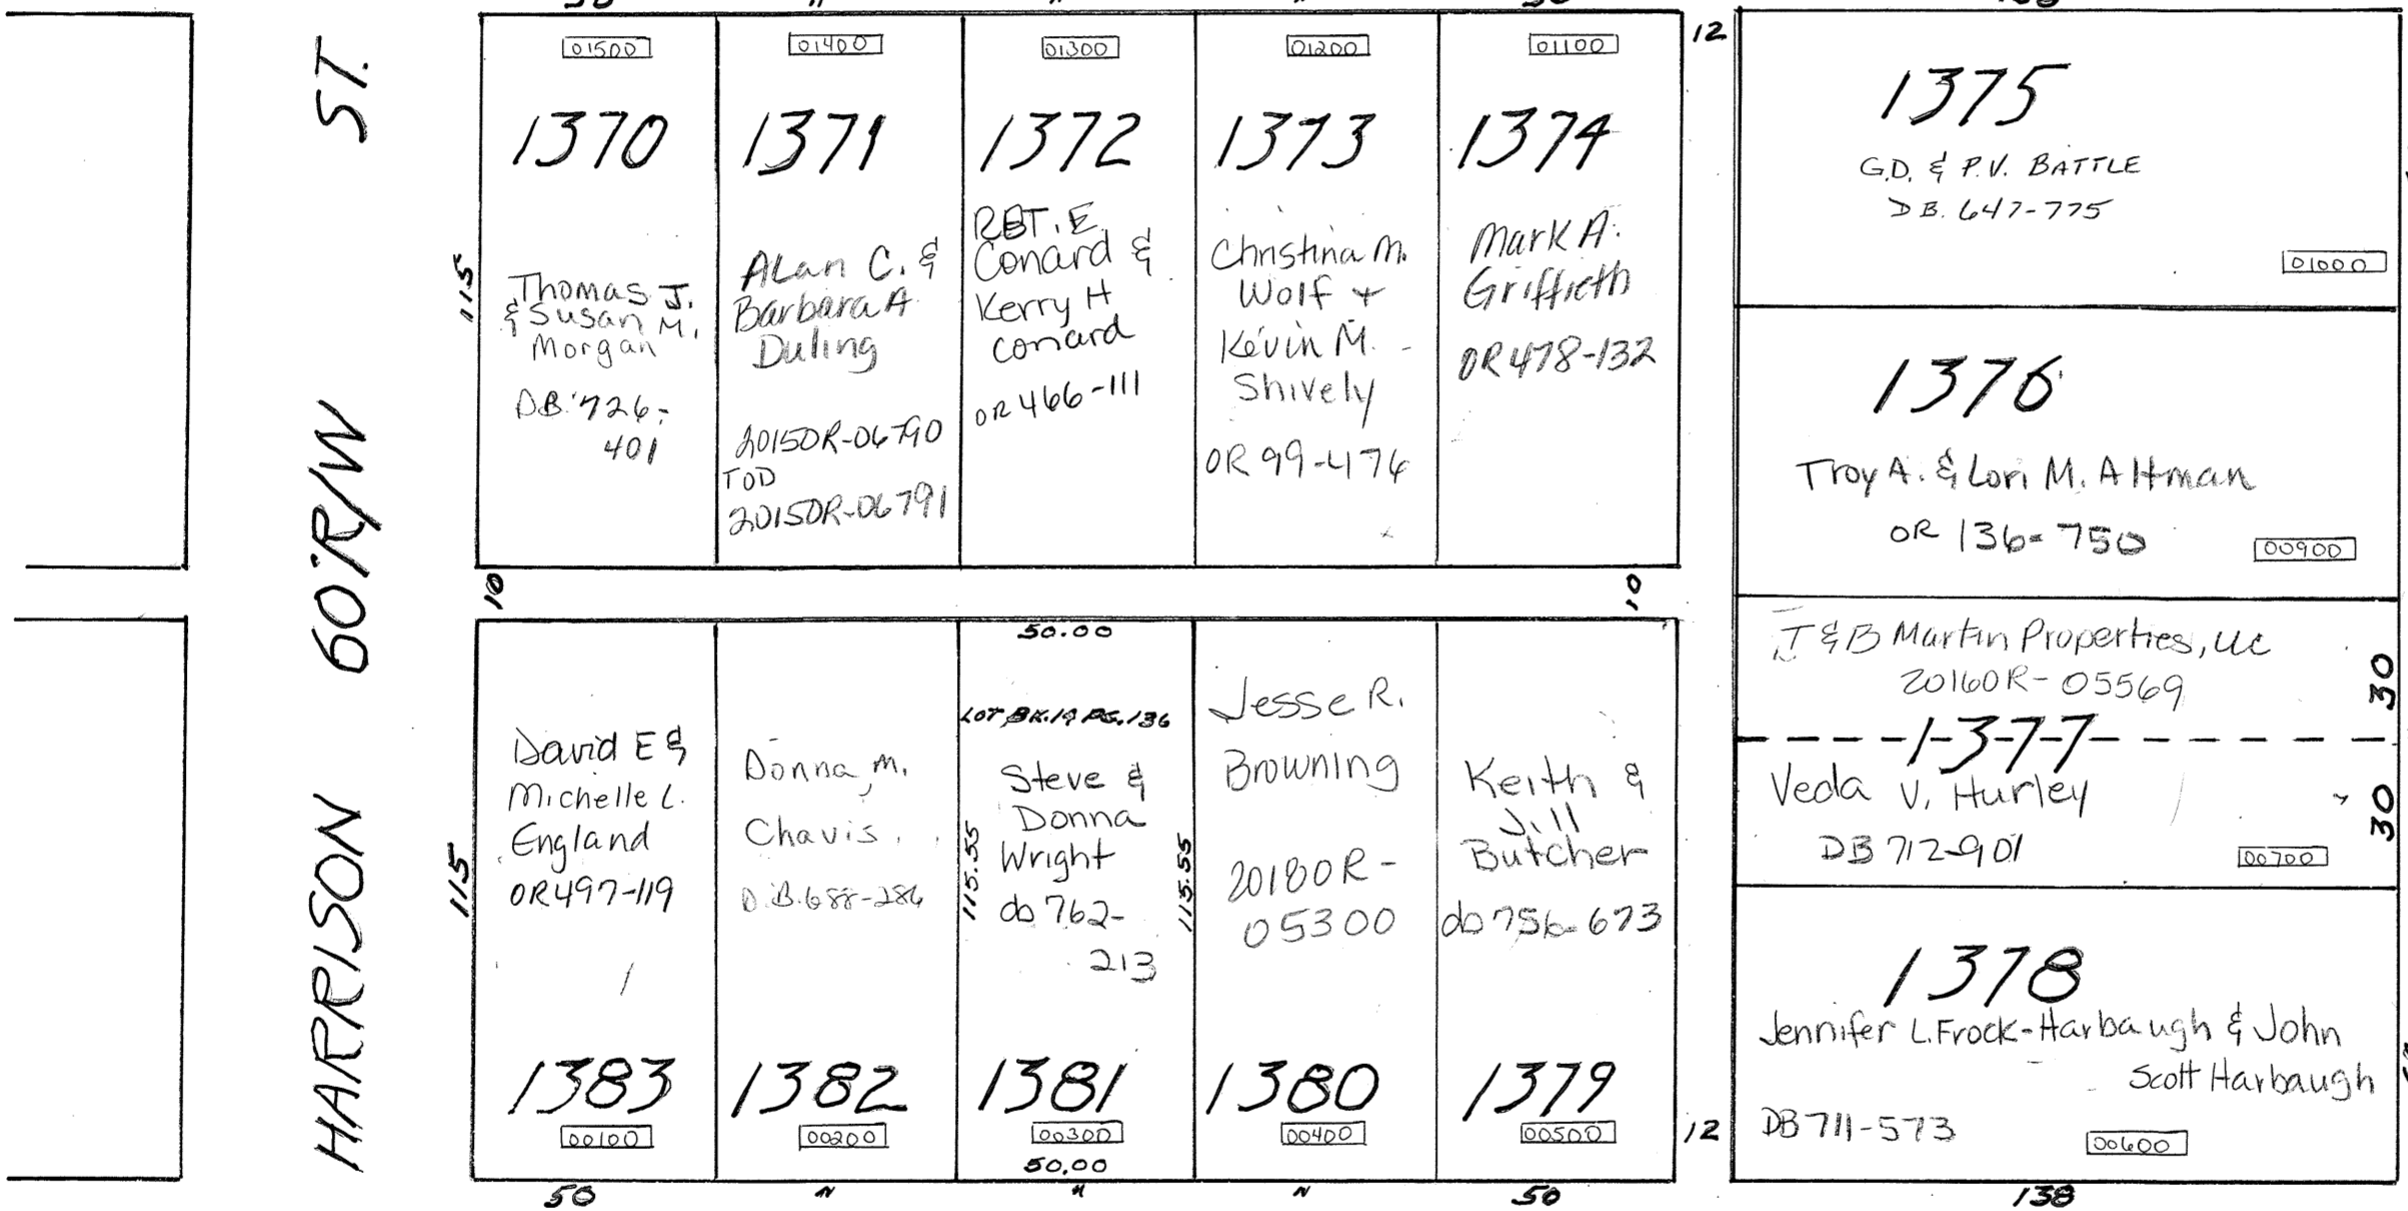 HARRISON 60'R/W ST.
50 " " " 50
01500
1370
Thomas J.
& Susan M.
Morgan
D.B. 726-
401
115
01400
1371
Alan C. &
Barbara A
Duling
2015OR-06790
TOD
2015OR-06791
01300
1372
RBT. E.
Conard &
Kerry H
Conard
OR 466-111
01200
1373
Christina M.
Wolf +
Kevin M.
Shively
OR 99-476
01100
1374
Mark A.
Griffieth
OR 478-132
12
10
10
1375
G.D. & P.V. BATTLE
DB. 647-775
01000
1376
Troy A. & Lori M. Altman
OR 136-750
00900
J & B Martin Properties, LLC
2016OR-05569
30
1377
Veda V. Hurley
DB 712-901
30
00700
1378
Jennifer L. Frock-Harbaugh & John
Scott Harbaugh
DB 711-573
00600
138
115
David E &
Michelle L.
England
OR 497-119
1383
00100
50
Donna M.
Chavis
D.B. 688-286
1382
00200
"
50.00
LOT BK. 19 PG. 136
Steve &
Donna
Wright
db 762-
213
115.55
115.55
1381
00300
50.00
"
Jesse R.
Browning
2018OR-
05300
1380
00400
"
Keith &
Jill
Butcher
db 756-673
1379
00500
50
12